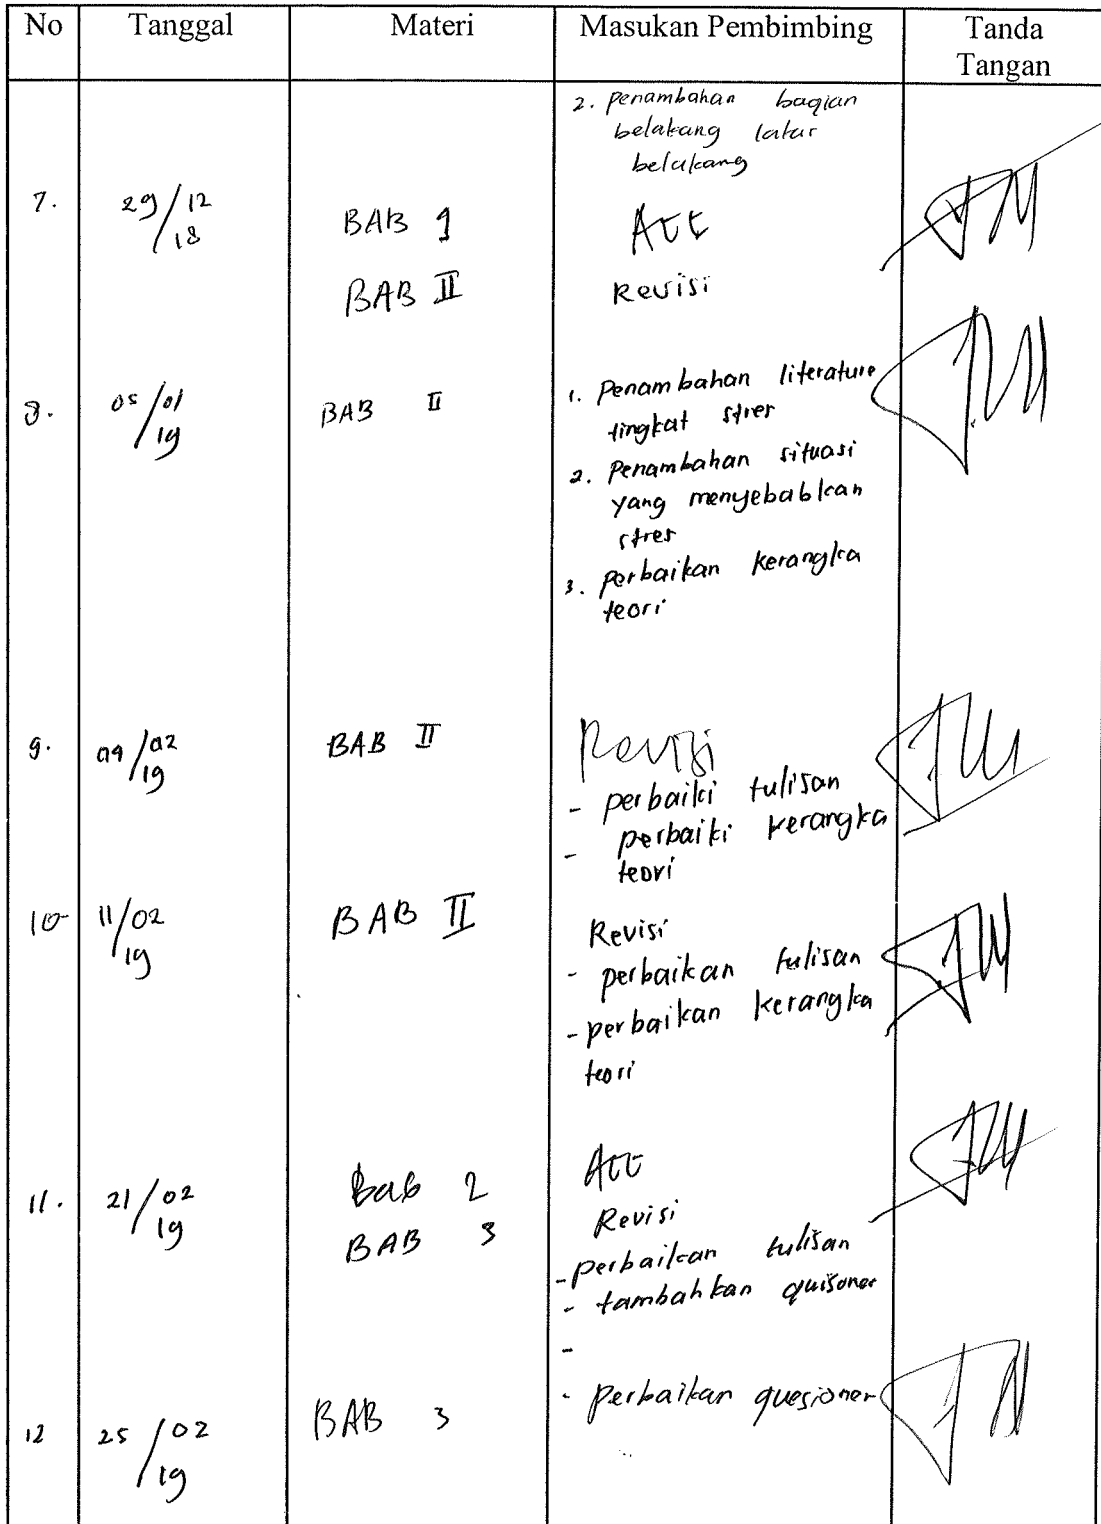 No Tanggal Materi Masukan Pembimbing Tanda
Tangan
2. penambahan bagian
belakang latar
belakang
7. 29/12/18 BAB 1 Acc
BAB II Revisi
8. 05/01/19 BAB II 1. Penambahan literature
tingkat stres
2. Penambahan situasi
yang menyebabkan
stres
3. perbaikan kerangka
teori
9. 09/02/19 BAB II Revisi
- perbaiki tulisan
- perbaiki kerangka
teori
10 11/02/19 BAB II Revisi
- perbaikan tulisan
- perbaikan kerangka
teori
11. 21/02/19 Bab 2 Acc
BAB 3 Revisi
- perbaikan tulisan
- tambahkan quisoner
-
- perbaikan quesioner
12 25/02/19 BAB 3